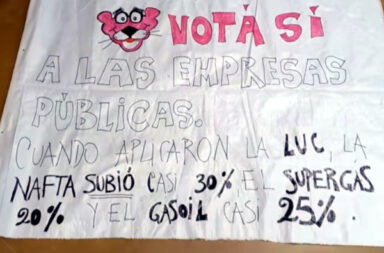 VOTÁ SÍ
A LAS EMPRESAS
PÚBLICAS.
CUANDO APLICARON LA LUC, LA
NAFTA SUBIÓ CASI 30%, EL SUPERGAS
20% Y EL GASOIL CASI 25%.